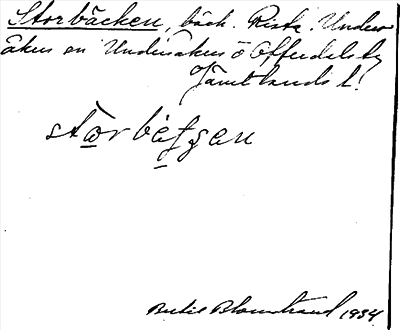 Storbäcken, bäck. Rista. Under
åkers sn Undersåkers o Offerdals tg
Jämtlands l.
stọrbèʈʂen
Bertil Blomstrand 1934